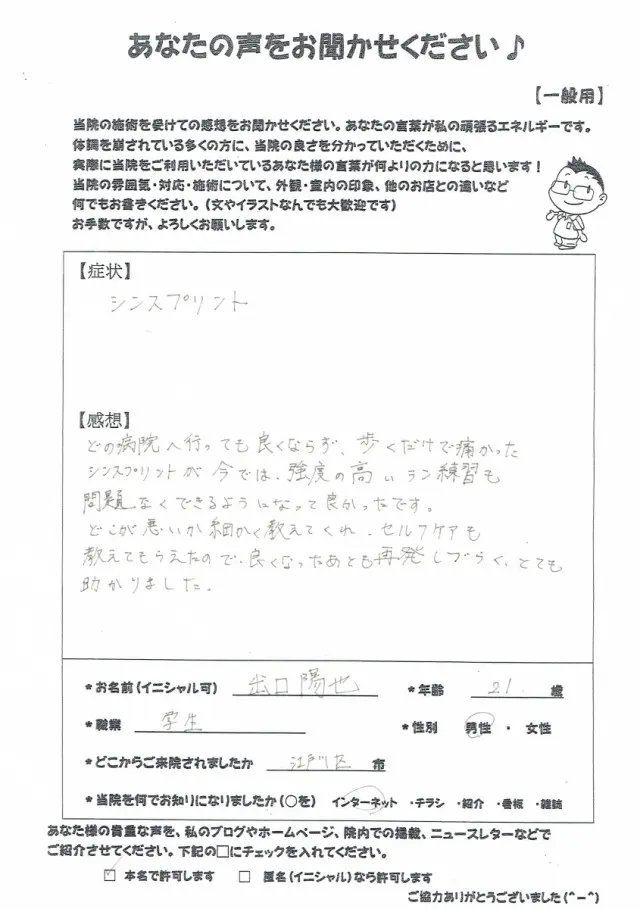 あなたの声をお聞かせください♪
【一般用】
当院の施術を受けての感想をお聞かせください。あなたの言葉が私の頑張るエネルギーです。
体調を崩されている多くの方に、当院の良さを分かっていただくために、
実際に当院をご利用いただいているあなた様の言葉が何よりの力になると思います！
当院の雰囲気・対応・施術について、外観・室内の印象、他のお店との違いなど
何でもお書きください。（文やイラストなんでも大歓迎です）
お手数ですが、よろしくお願いします。
【症状】
シンスプリント
【感想】
どの病院へ行っても良くならず、歩くだけで痛かった
シンスプリントが今では、強度の高いラン練習も
問題なくできるようになって良かったです。
どこが悪いか細かく教えてくれ、セルフケアも
教えてもらえたので、良くなったあとも再発しづらく、とても
助かりました。
*お名前（イニシャル可） 出口陽也 *年齢 21 歳
*職業 学生 *性別 男性 ・ 女性
*どこからご来院されましたか 江戸川区 市
*当院を何でお知りになりましたか（○を） インターネット ・チラシ ・紹介 ・看板 ・雑誌
あなた様の貴重な声を、私のブログやホームページ、院内での掲載、ニュースレターなどで
ご紹介させてください。下記の□にチェックを入れてください。
☑ 本名で許可します □ 匿名（イニシャル）なら許可します
ご協力ありがとうございました(^-^)